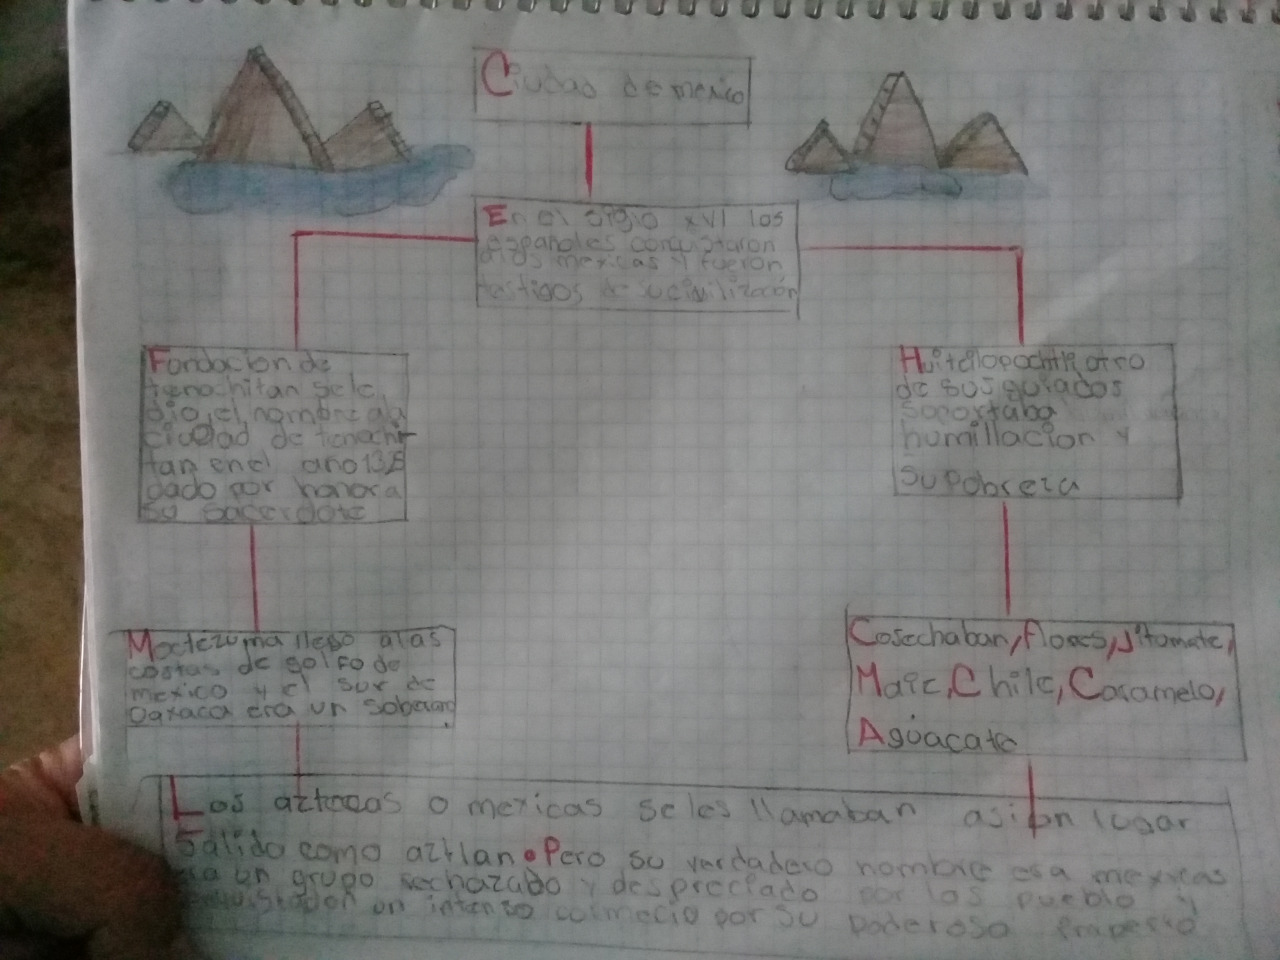 Ciudad de mexico
En el siglo XVI los
españoles conquistaron
a los mexicas y fueron
testigos de su civilización
Fondacion de
tenochitan sele
dio, el nombre a la
ciudad de tenochi-
tan en el año 1325
dado por honor a
su sacerdote
Moctezuma llego alas
costas de golfo de
mexico y el sur de
Oaxaca era un soberano
Huitzilopochtli otro
de sus guiados
soportaba
humillacion y
su pobreza
Cosechaban, flores, Jitomate,
Maíz, Chile, Caramelo,
Aguacate
Los aztecas o mexicas se les llamaban asi un lugar
Salido como aztlan. Pero su verdadero nombre era mexicas
un grupo rechazado y despreciado por los pueblo y
un intenso comercio por su poderoso